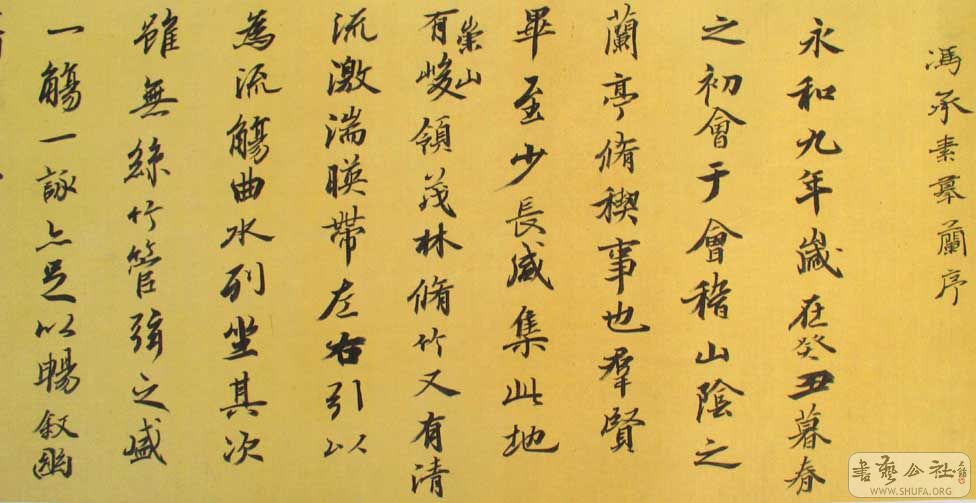 馮承素摹蘭序
永和九年歲在癸丑暮春
之初會于會稽山陰之
蘭亭脩稧事也羣賢
畢至少長咸集此地
有崇山峻領茂林脩竹又有清
流激湍暎帶左右引以
為流觴曲水列坐其次
雖無絲竹管弦之盛
一觴一詠亦足以暢叙幽
書藝公社
WWW.SHUFA.ORG